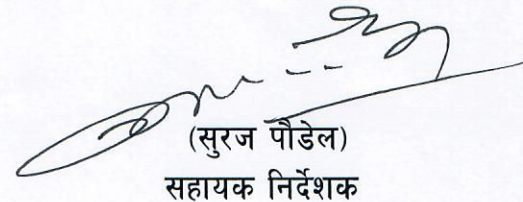 (सुरज पौडेल)
सहायक निर्देशक